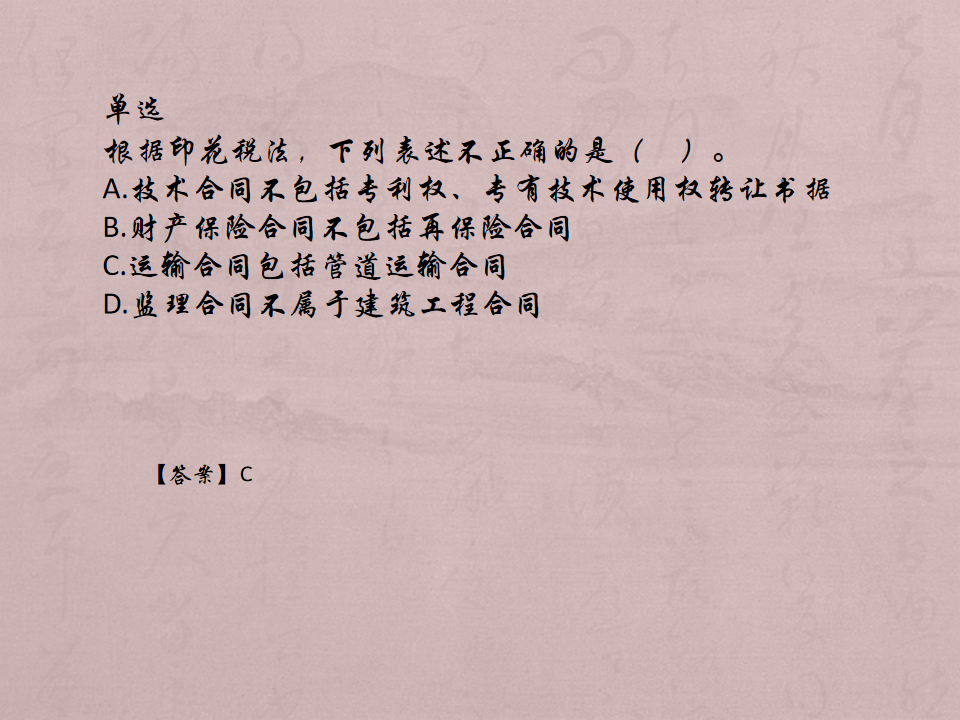 单选
根据印花税法，下列表述不正确的是（　）。
A.技术合同不包括专利权、专有技术使用权转让书据
B.财产保险合同不包括再保险合同
C.运输合同包括管道运输合同
D.监理合同不属于建筑工程合同
【答案】C